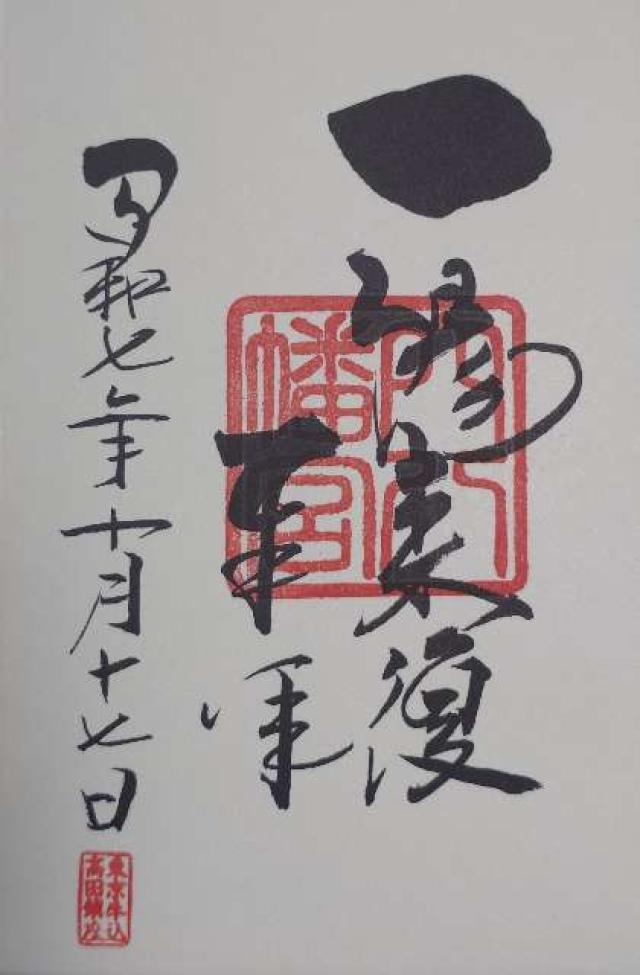 一陽来復
奉拝
穴八
幡宮
令和七年十月十七日
東京牛込
高田鎮座